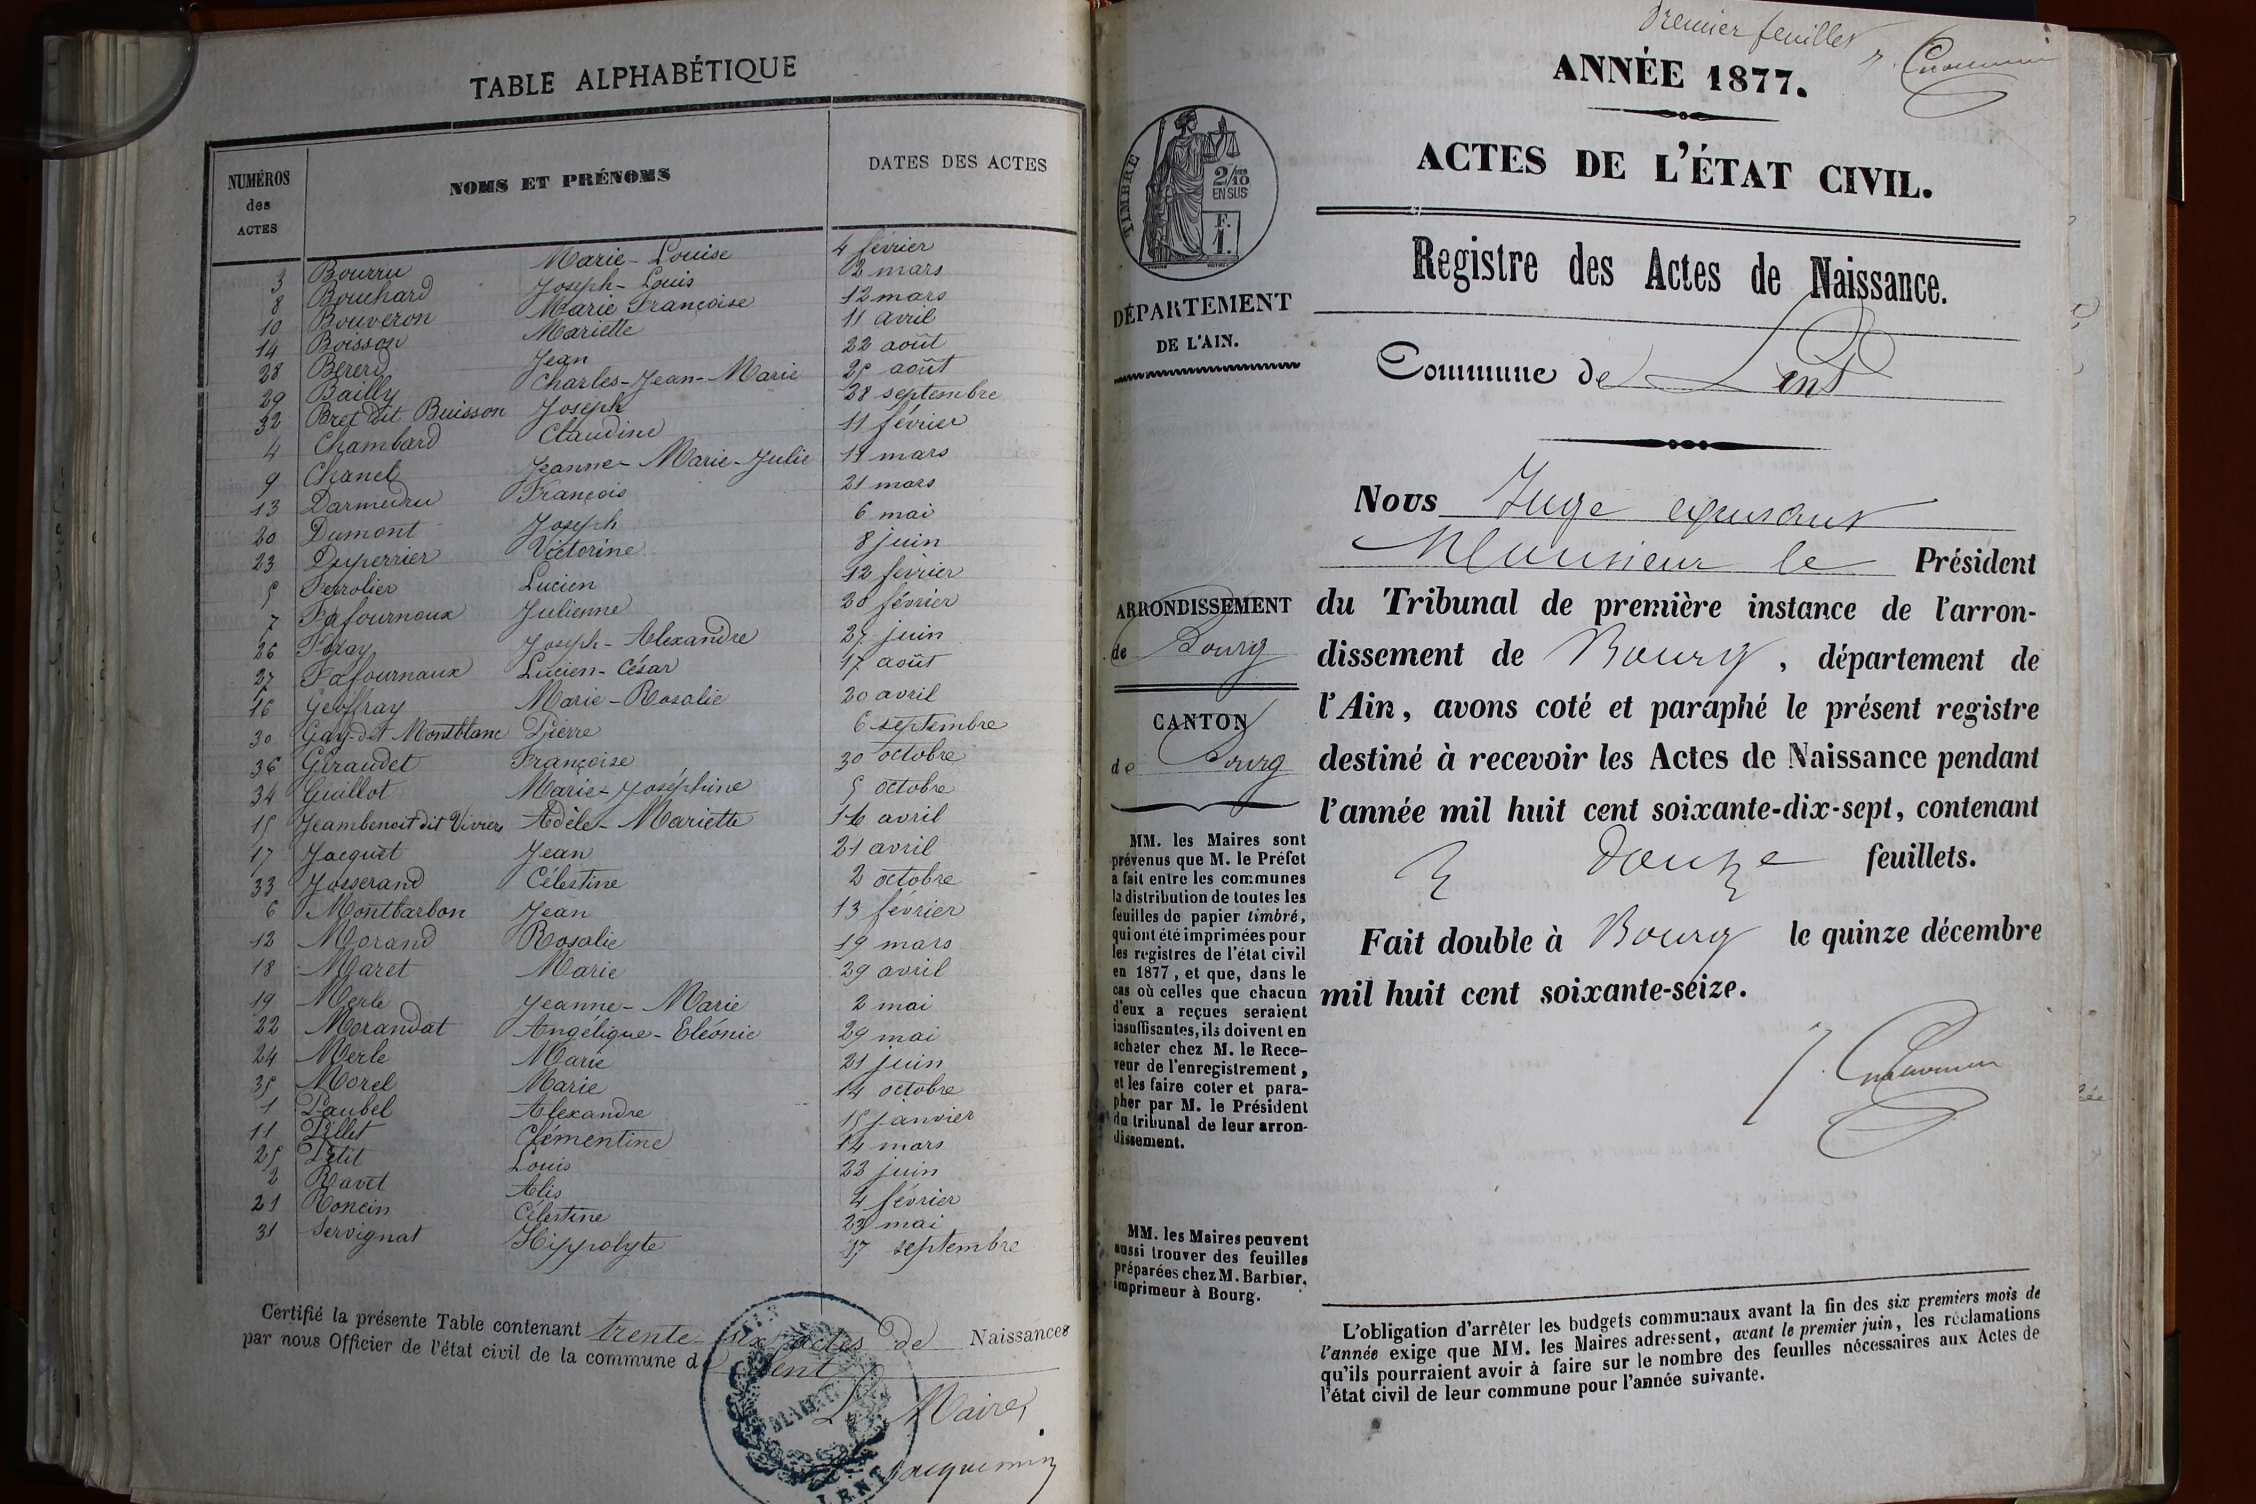 TABLE ALPHABÉTIQUE
NUMÉROS des ACTES NOMS ET PRÉNOMS DATES DES ACTES
3 Bourru Marie-Louise 4 février
8 Bouchard Joseph-Louis 2 mars
10 Bouveron Marie Françoise 12 mars
14 Boisson Mariette 11 avril
28 Bererd Jean 22 août
29 Bailly Charles-Jean-Marie 25 août
32 Bret dit Buisson Joseph 28 septembre
4 Chambard Claudine 11 février
9 Chanel Jeanne-Marie-Julie 11 mars
13 Darmedru François 21 mars
20 Dumont Joseph 6 mai
23 Duperrier Victorine 8 juin
5 Ferrolier Lucien 12 février
7 Fafournoux Julienne 20 février
26 Foray Joseph-Alexandre 27 juin
27 Fafournoux Lucien-César 17 août
16 Geoffray Marie-Rosalie 20 avril
30 Gay-dit Montblanc Pierre 6 septembre
36 Giraudet Françoise 30 octobre
34 Guillot Marie-Joséphine 5 octobre
15 Jeambenoit dit Vivrers Adèle-Mariette 16 avril
17 Jacquet Jean 21 avril
33 Josserand Célestine 2 octobre
6 Montbarbon Jean 13 février
12 Morand Rosalie 19 mars
18 Maret Marie 29 avril
19 Merle Jeanne-Marie 2 mai
22 Morandat Angélique-Eléonie 29 mai
24 Merle Marie 21 juin
35 Morel Marie 14 octobre
1 Paubel Alexandre 15 janvier
11 Pillet Clémentine 14 mars
25 Petit Louis 22 juin
2 Ravet Alis 4 février
21 Roncin Célestine 23 mai
31 Servignat Hippolyte 17 septembre
Certifié la présente Table contenant trente-six actes de Naissances
par nous Officier de l'état civil de la commune de Lent
Le Maire,
Jacquemin
MAIRIE
LENT
Premier feuillet
ANNÉE 1877.
ACTES DE L'ÉTAT CIVIL.
TIMBRE
2/10 EN SUS
F. 1.
Registre des Actes de Naissance.
DÉPARTEMENT
DE L'AIN.
Commune de Lent
Nous Juge excusant
Monsieur le Président
ARRONDISSEMENT
de Bourg
CANTON
de Bourg
du Tribunal de première instance de l'arron-
dissement de Bourg, département de
l'Ain, avons coté et paraphé le présent registre
destiné à recevoir les Actes de Naissance pendant
l'année mil huit cent soixante-dix-sept, contenant
douze feuillets.
Fait double à Bourg le quinze décembre
mil huit cent soixante-seize.
MM. les Maires sont
prévenus que M. le Préfet
a fait entre les communes
la distribution de toutes les
feuilles de papier timbré,
qui ont été imprimées pour
les registres de l'état civil
en 1877, et que, dans le
cas où celles que chacun
d'eux a reçues seraient
insuffisantes, ils doivent en
acheter chez M. le Rece-
veur de l'enregistrement,
et les faire coter et para-
pher par M. le Président
du tribunal de leur arron-
dissement.
MM. les Maires peuvent
aussi trouver des feuilles
préparées chez M. Barbier,
imprimeur à Bourg.
L'obligation d'arrêter les budgets communaux avant la fin des six premiers mois de
l'année exige que MM. les Maires adressent, avant le premier juin, les réclamations
qu'ils pourraient avoir à faire sur le nombre des feuilles nécessaires aux Actes de
l'état civil de leur commune pour l'année suivante.